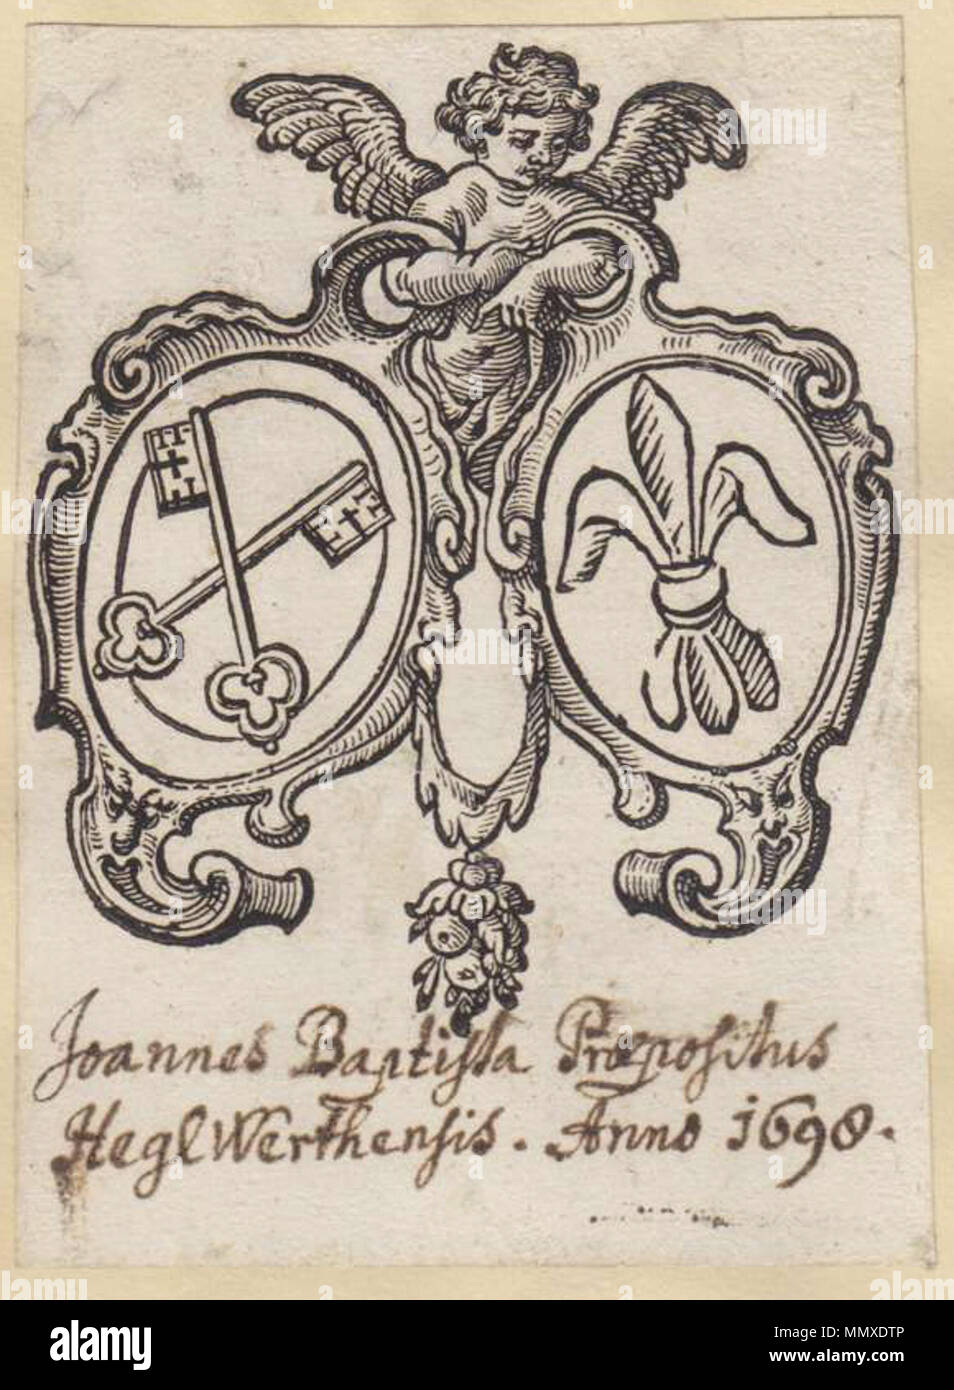 Joannes Baptista Præpositus
HeglWerthensis. Anno 1698.
alamy
Image ID: MMXDTP
www.alamy.com